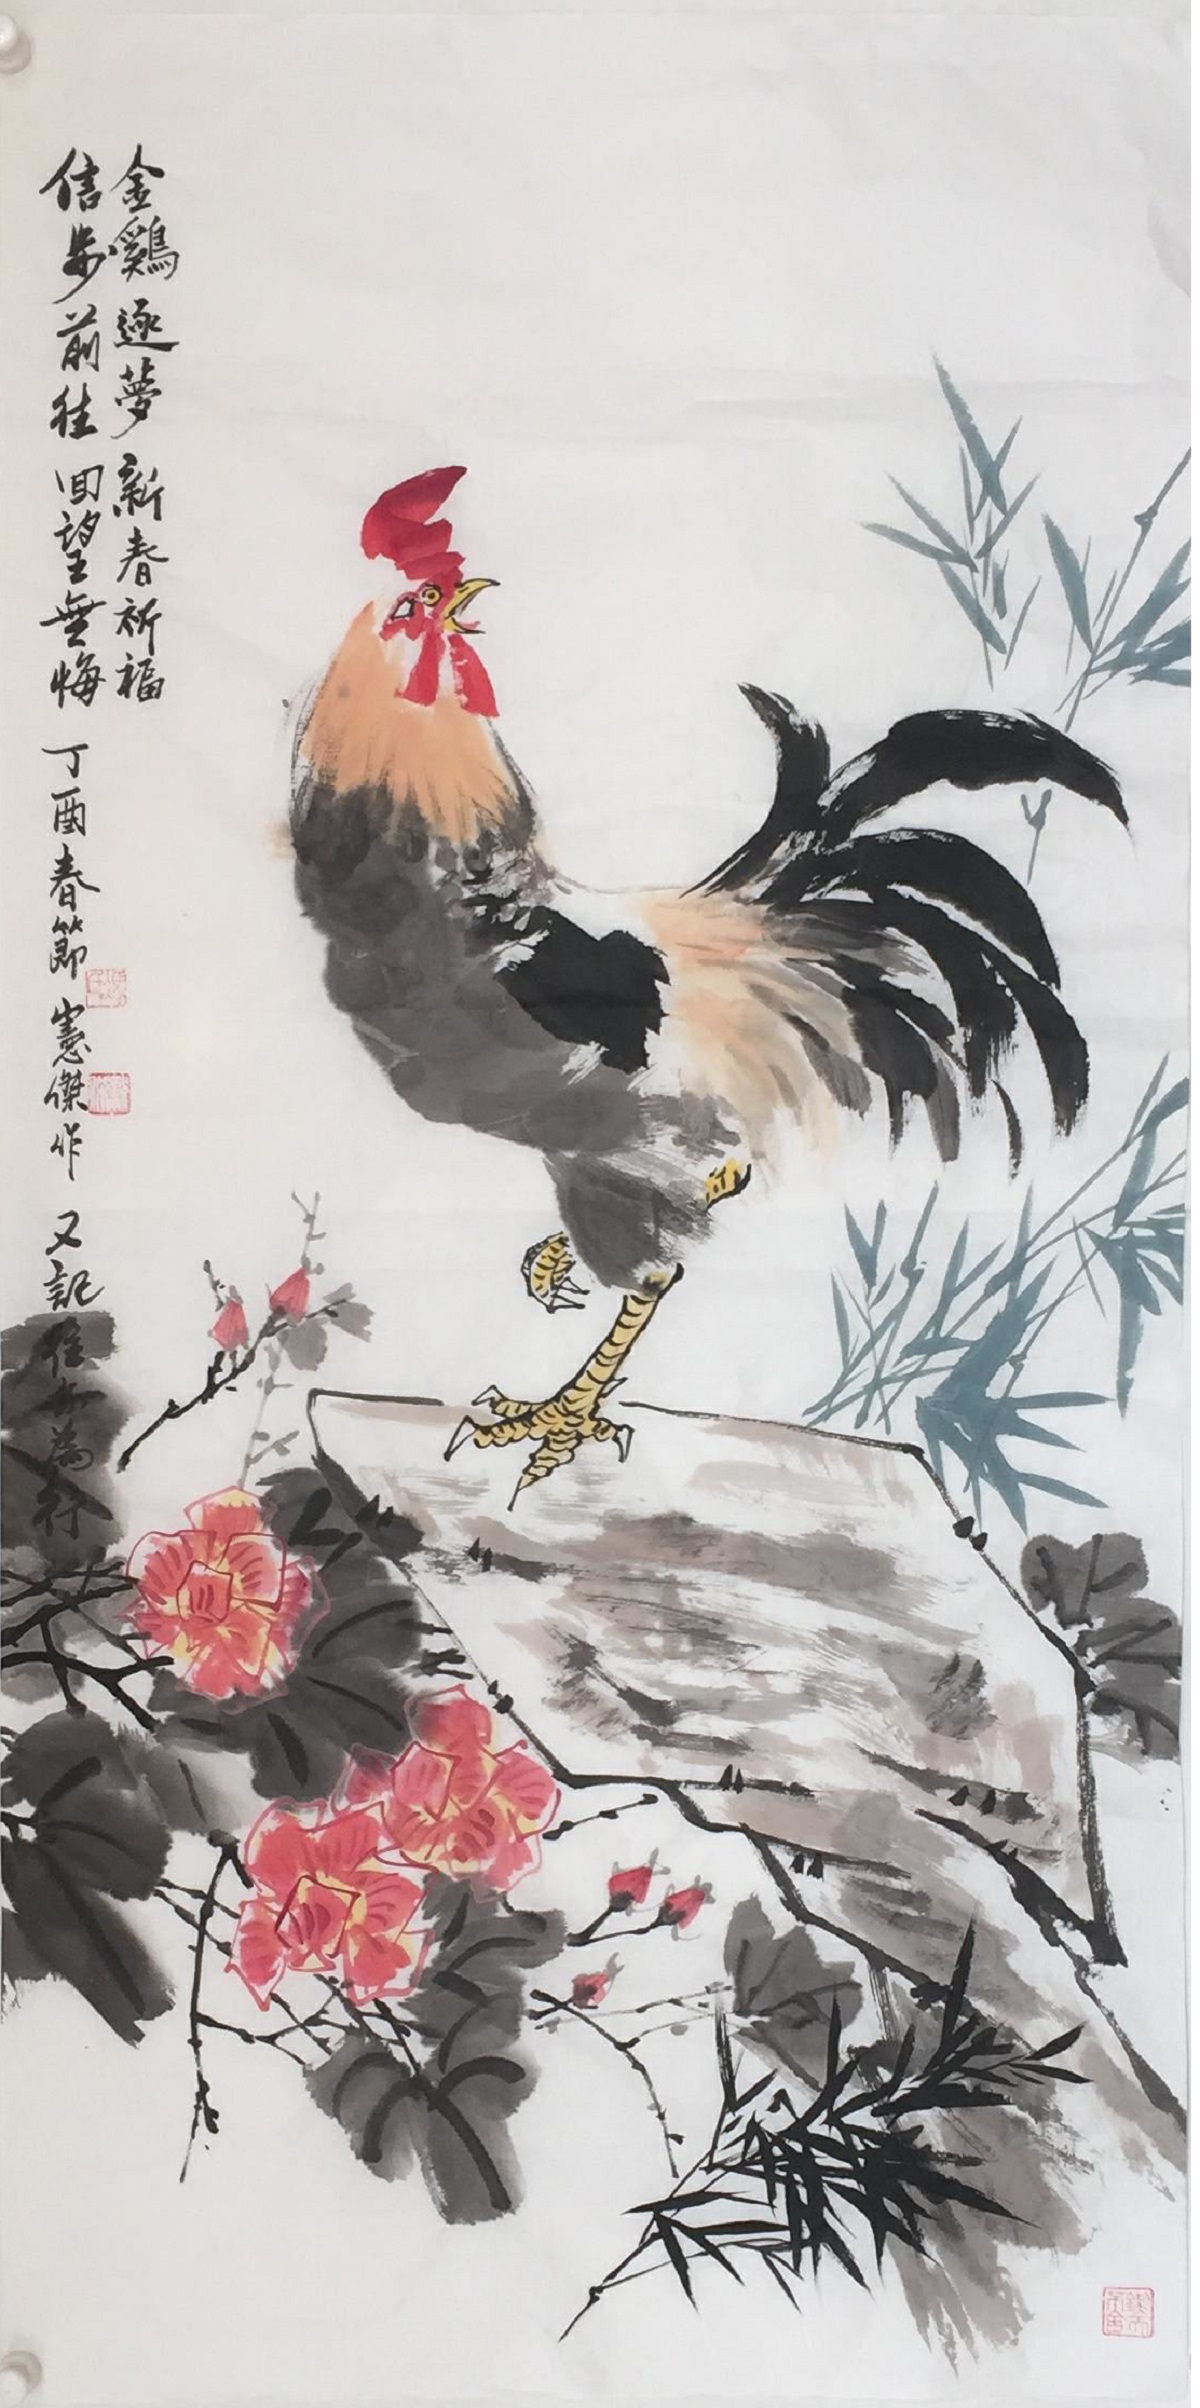 金鷄逐夢新春祈福
信步前往回望無悔丁酉春節憲傑作又記